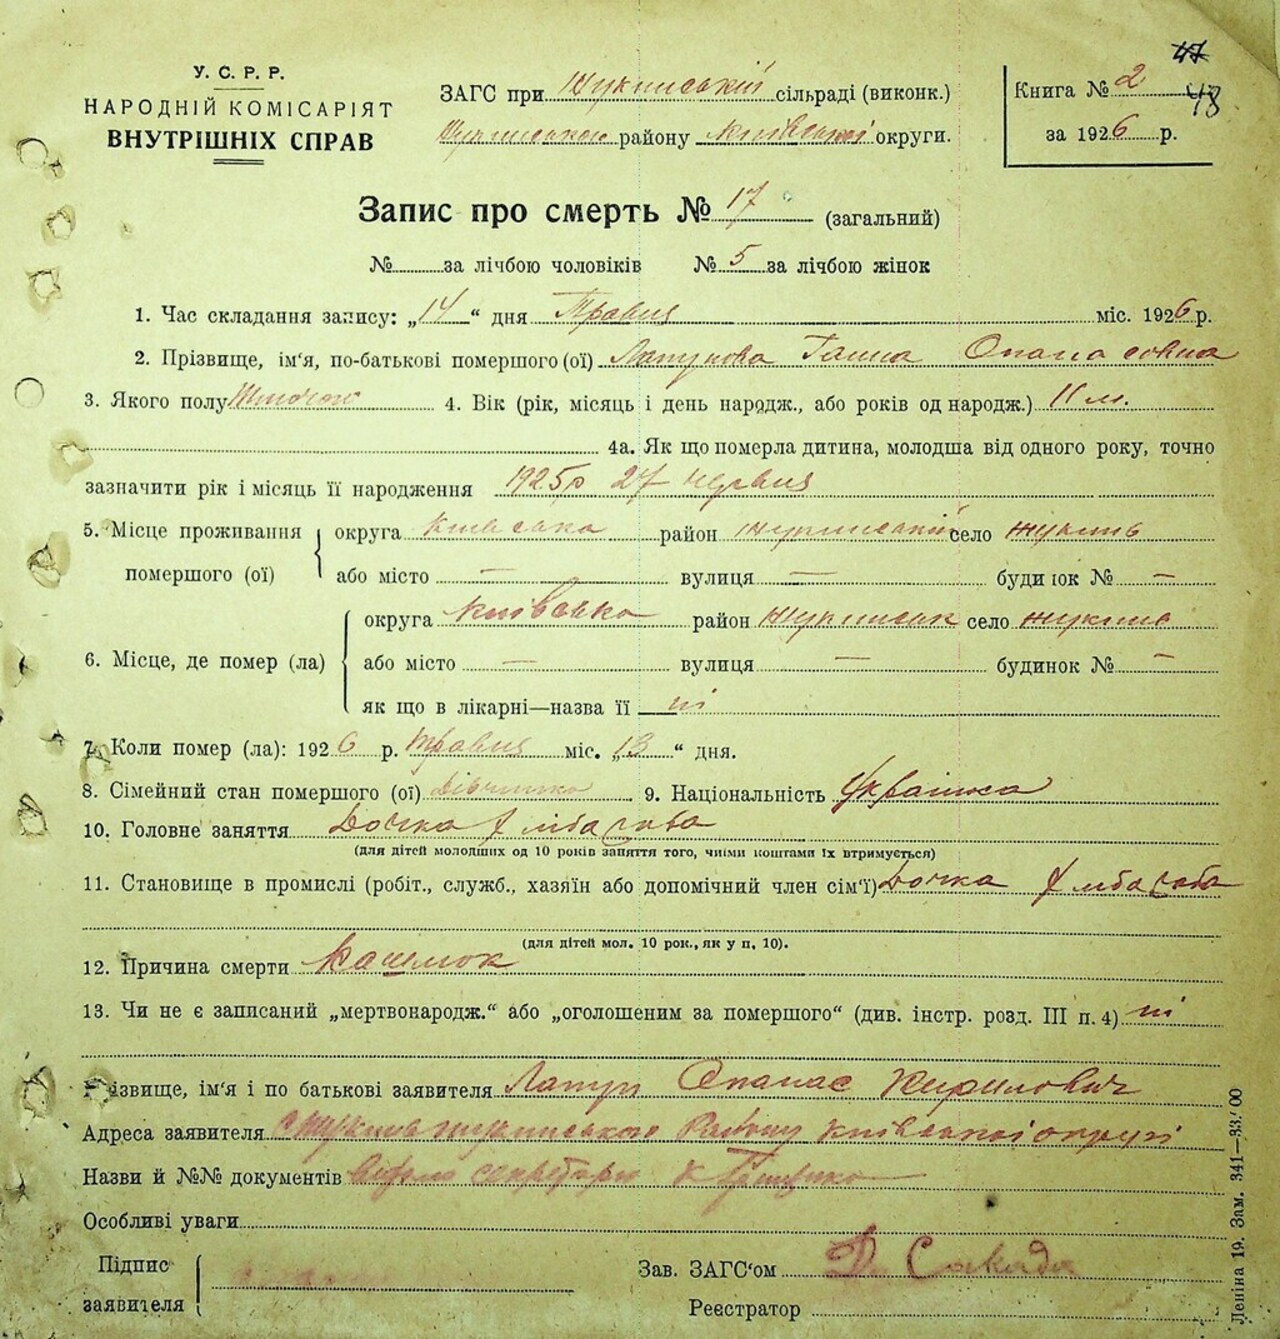 47
48
У. С. Р. Р.
НАРОДНІЙ КОМІСАРІЯТ
ВНУТРІШНІХ СПРАВ
ЗАГС при Жукинській сільраді (виконк.)
Жукинського району Київської округи.
Книга № 2
за 1926 р.
Запис про смерть № 17 (загальний)
№ за лічбою чоловіків № 5 за лічбою жінок
1. Час складання запису: „14“ дня Травня міс. 1926 р.
2. Прізвище, ім'я, по-батькові помершого (ої) Лапунова Ганна Опанасовна
3. Якого полу Жіночого 4. Вік (рік, місяць і день народж., або років од народж.) 11 м.
4а. Як що померла дитина, молодша від одного року, точно
зазначити рік і місяць її народження 1925 р 27 червня
5. Місце проживання помершого (ої) округа Київська район Жукинський село Жукинь
або місто — вулиця — будинок № —
6. Місце, де помер (ла) округа Київська район Жукинськ село Жукинь
або місто — вулиця — будинок № —
як що в лікарні—назва її ні
7. Коли помер (ла): 1926 р. Травня міс. „13“ дня.
8. Сімейний стан помершого (ої) Дівчинка 9. Національність Українка
10. Головне заняття Дочка Хлібароба
(для дітей молодших од 10 років заняття того, чиїми коштами їх втримується)
11. Становище в промислі (робіт., служб., хазяїн або допомічний член сім'ї) Дочка Хлібароба
(для дітей мол. 10 рок., як у п. 10).
12. Причина смерти Кашлюк
13. Чи не є записаний „мертвонародж.“ або „оголошеним за помершого“ (див. інстр. розд. III п. 4) ні
Прізвище, ім'я і по батькові заявителя Лапун Опанас Кирилович
Адреса заявителя с Жукинь Жукинського Району Київської округи
Назви й №№ документів секретарь
Особливі уваги
Підпис заявителя
Зав. ЗАГС'ом
Реєстратор
Леніна 19. Зам. 341—33.'00